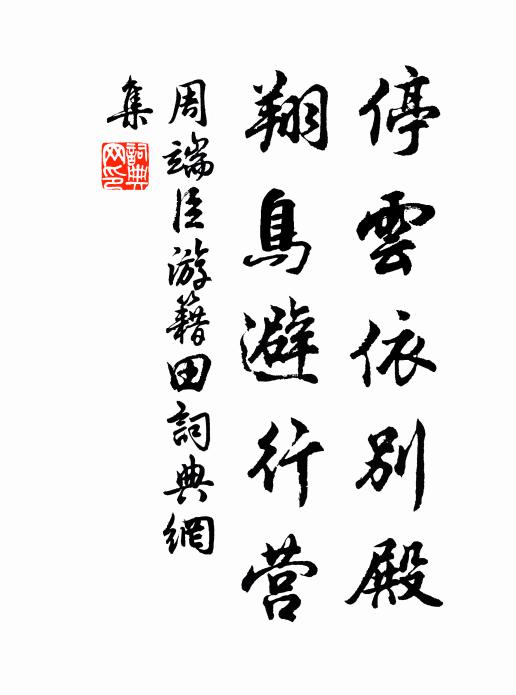 停雲依别殿
翔鳥避行营
周端臣游籍田詞典網
集
詞典
网印